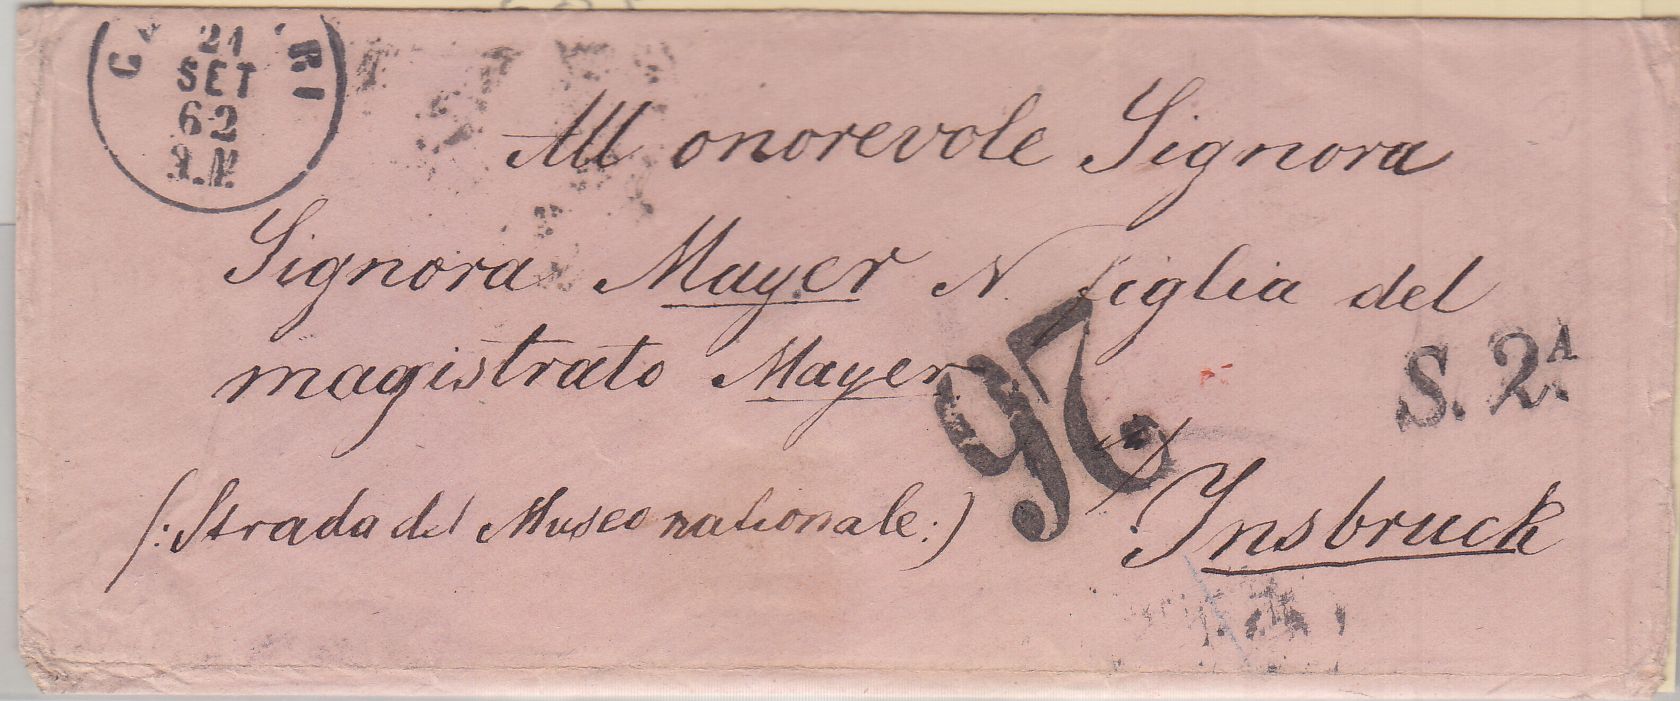 21
SET
62
All onorevole Signora
Signora Mayer N. figlia del
magistrato Mayer
26
S. 2.A
(: Strada del Museo nationale :)
Insbruck